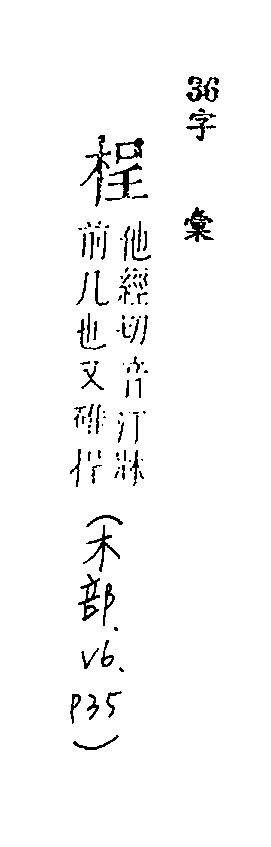 36字彙
桯
他經切音汀牀
前几也又碓桯
(木部.V6.P35)